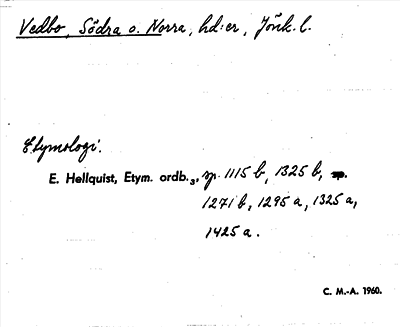 Vedbo, Södra o. Norra, hd:er, Jönk. l.
Etymologi.
E. Hellquist, Etym. ordb.₃, sp. 1115 b, 1325 b,
1271 b, 1295 a, 1325 a,
1425 a.
C. M.-A. 1960.